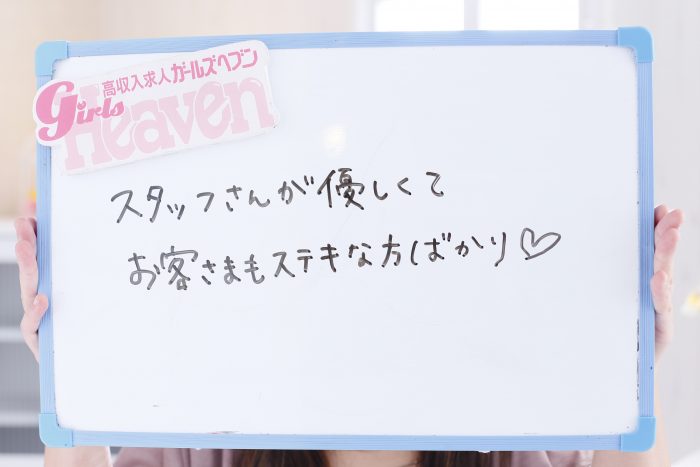 高収入求人ガールズヘブン
Girls Heaven
スタッフさんが優しくて
お客さまもステキな方ばかり♡